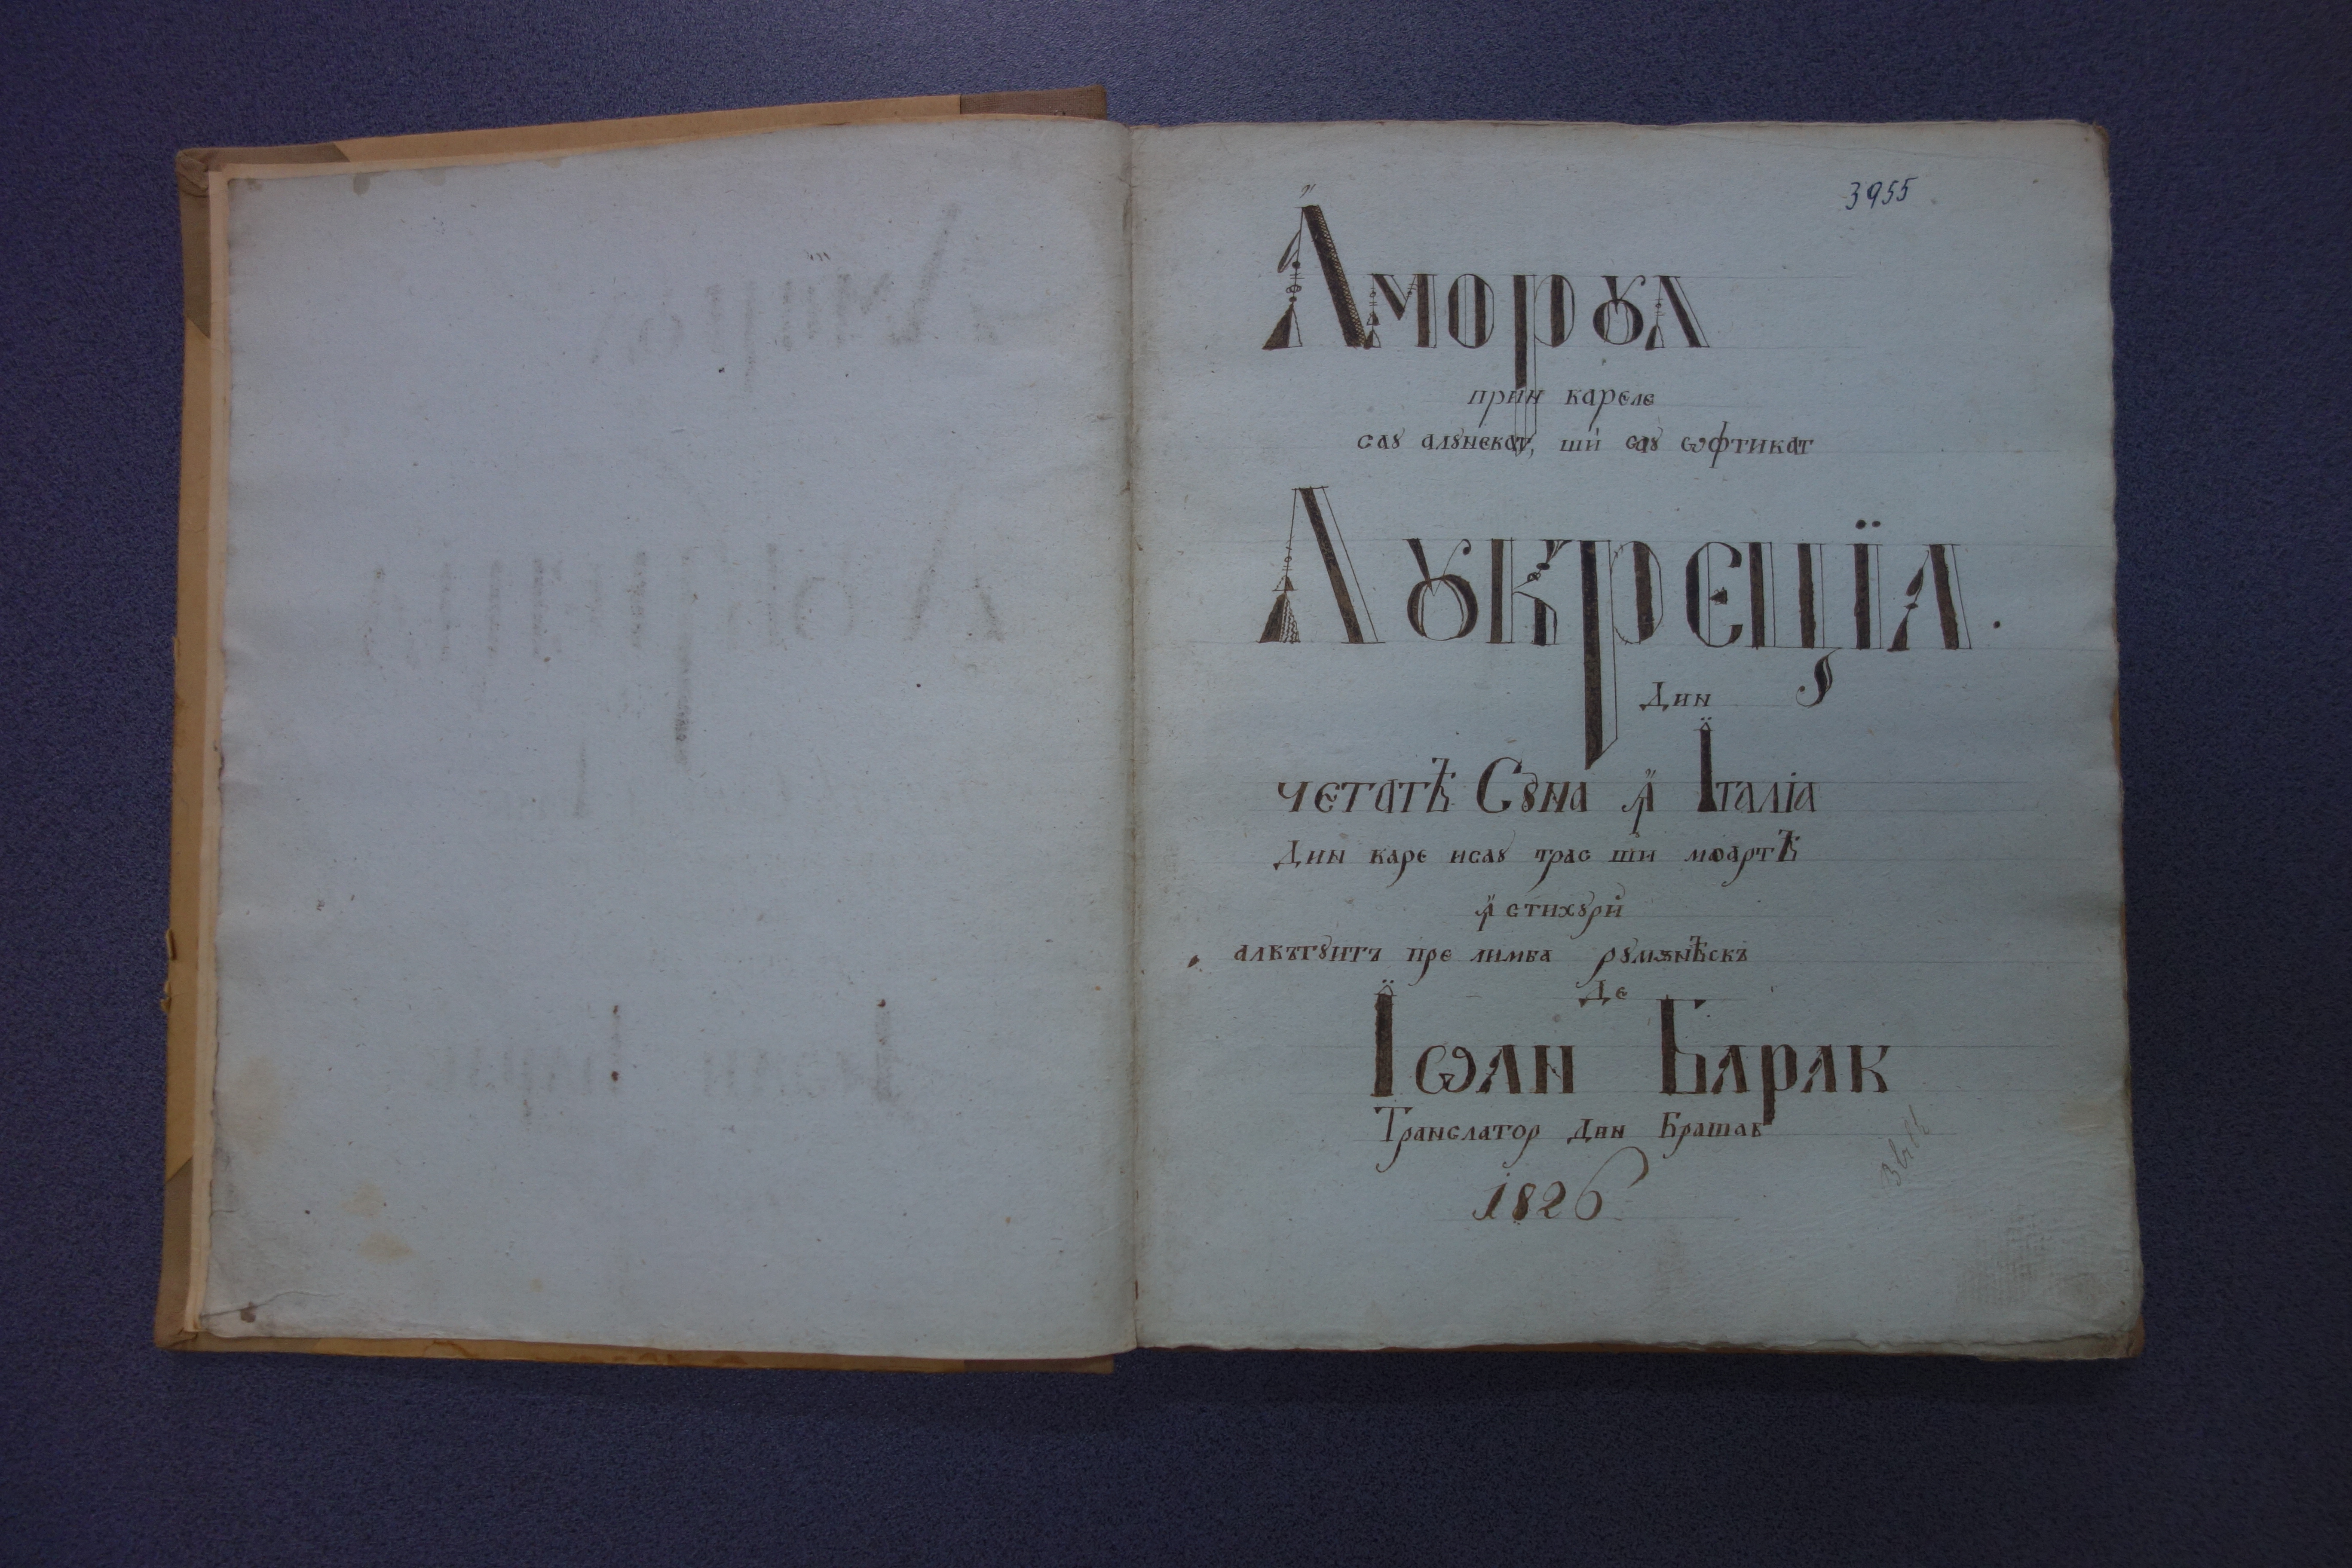 3955
Аморꙋл
прин кареле
саꙋ алꙋнекат, ши саꙋ ѡфтикат
Лꙋкреціа.
Дин
четатѣ Сꙋна ꙟ Італіа
Дин каре исаꙋ трас ши моартѣ
ꙟ стихꙋри
алкътꙋитъ пре лимба рꙋмѫнѣскъ
Де
Іѡан Барак
Транслатор дин Брашав
1826